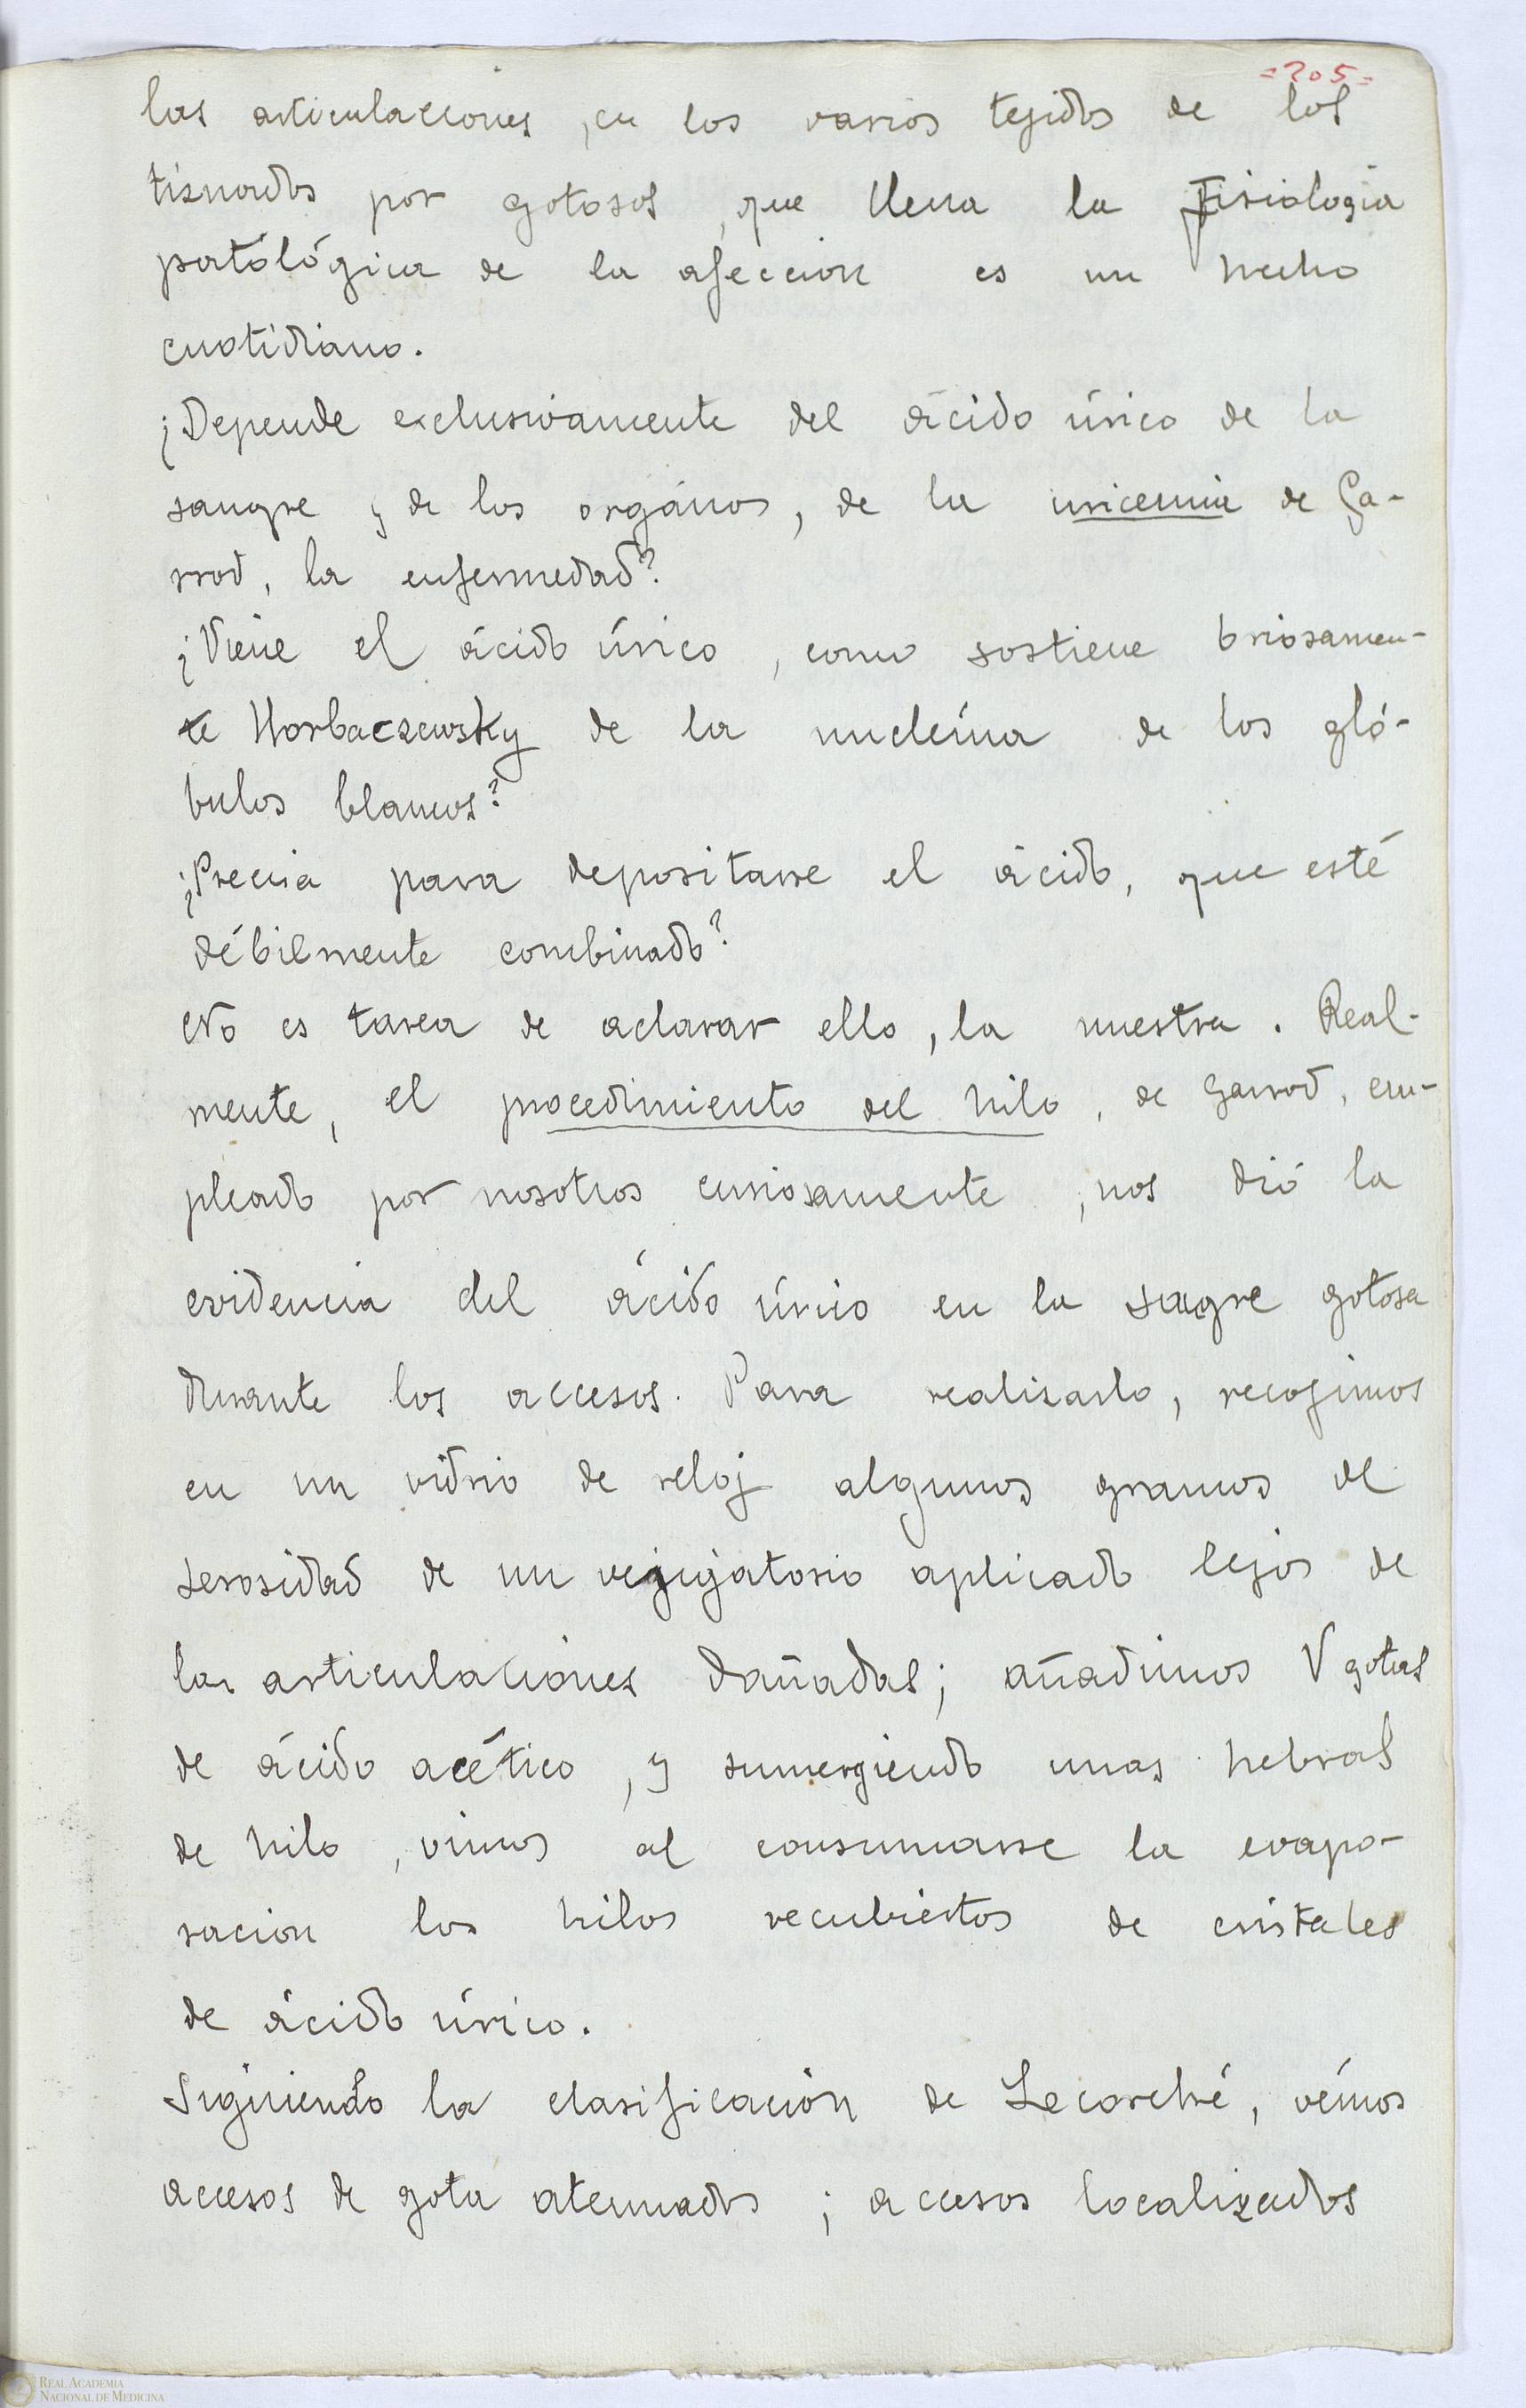 =205=
las articulacciones, en los varios tejidos de los
tiznados por gotosos, que llena la Fisiologia
patológica de la afeccion es un hecho
cuotidiano.
¿Depende exclusivamente del ácido úrico de la
sangre y de los orgános, de la uricemia de Ga-
rrod, la enfermedad?
¿Viene el ácido úrico, como sostiene briosamen-
te Horbaczewsky de la nucleína de los gló-
bulos blancos?
¿Precisa para depositarse el ácido, que esté
débilmente combinado?
No es tarea de aclarar ello, la nuestra. Real-
mente, el procedimiento del hilo, de Garrod, em-
pleado por nosotros curiosamente, nos dió la
evidencia del ácido úrico en la sagre gotosa
durante los accesos. Para realizarlo, recogimos
en un vidrio de reloj algunos gramos de
serosidad de un vejigatorio aplicado lejos de
las articulaciónes dañadas; añadimos V gotas
de ácido acético, y sumergiendo unas hebras
de hilo, vimos al consumarse la evapo-
racion los hilos recubiertos de cristales
de ácido úrico.
Siguiendo la clasificación de Lecorché, vémos
accesos de gota atenuados; accesos localizados
REAL ACADEMIA
NACIONAL DE MEDICINA